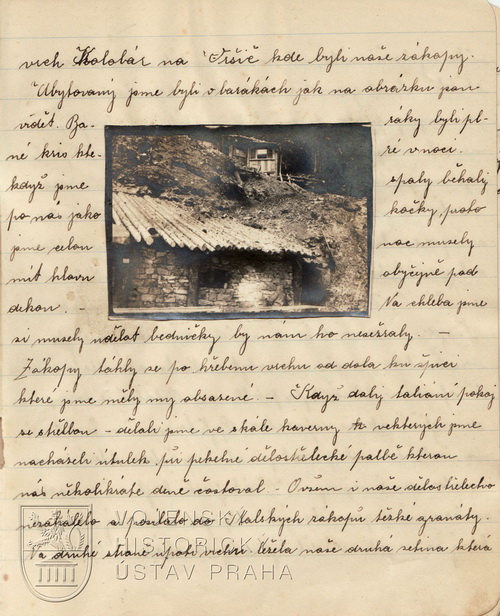 vrch Kolobár na Vršič kde byli naše zákopy.
Ubytovaný jsme byli v barákách jak na obrázku pan
vidět. Ba- raky byli pl-
né kris kte- ré v noci.
když jsme spaly běhaly
po nás jako kočky, proto
jsme celou noc musely
mít hlavu obyčejně pod
dekou. - Na chleba jsme
si musely udělat bedničky by nám ho nesežraly. -
Zákopy táhly se po hřebenu vrchu od dola ku špici
které jsme měly my obsazené. - Když daly taliani pokoj
se střelbou - dělali jsme ve skále kaverny v nekterých jsme
nacházeli útulek, při pekelné dělostřelecké palbě kterou
nás několikráte deně častoval. - Ovšem i naše dělostřelectvo
nezahálelo a posílalo do Italských zákopů těžké granáty.
Na druhé straně upatí vrchu ležela naše druha setina která
VOJENSKÝ
HISTORICKÝ
ÚSTAV PRAHA